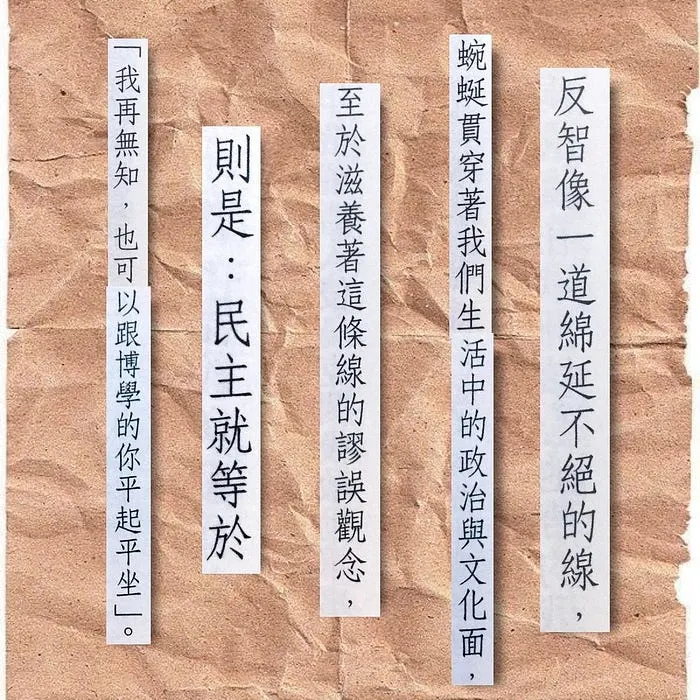 反智像一道綿延不絕的線，
蜿蜒貫穿著我們生活中的政治與文化面，
至於滋養著這條線的謬誤觀念，
則是：民主就等於
「我再無知，也可以跟博學的你平起平坐」。